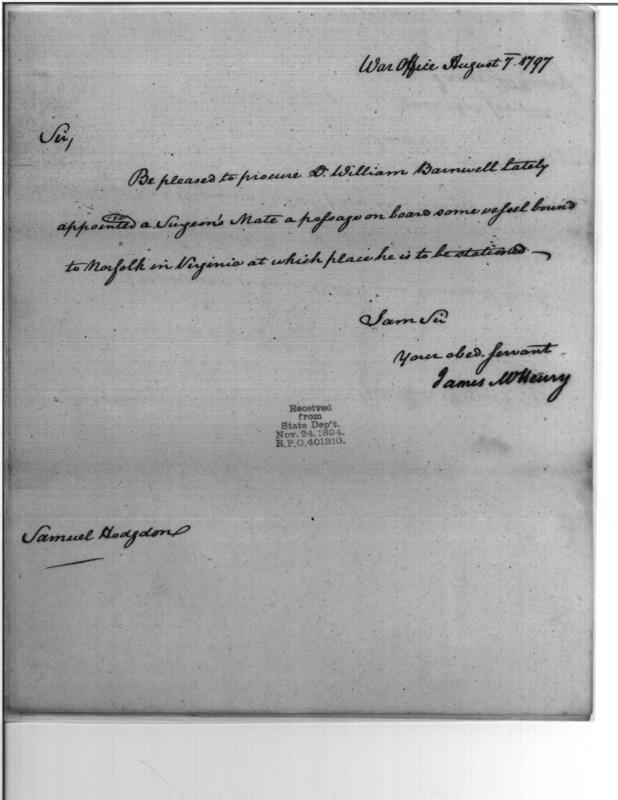 War Office August 7. 1797
Sir,
Be pleased to procure D. William Barnwell lately
appointed a Surgeon's Mate a passage on board some vessel bound
to Norfolk in Virginia at which place he is to be stationed
I am Sir
Your obed. servant
James McHenry
Received
from
State Dep't.
Nov. 24. 1894.
R.P.O. 401310.
Samuel Hodgdon